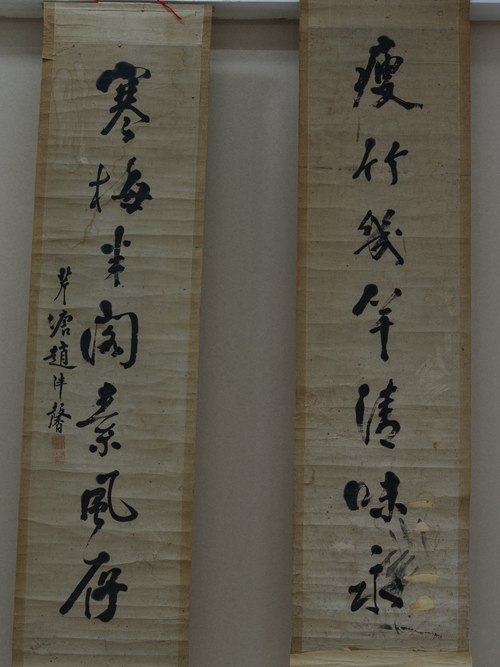 瘦竹幾竿清味永
寒梅半閣素風存
芹塘趙泮馨